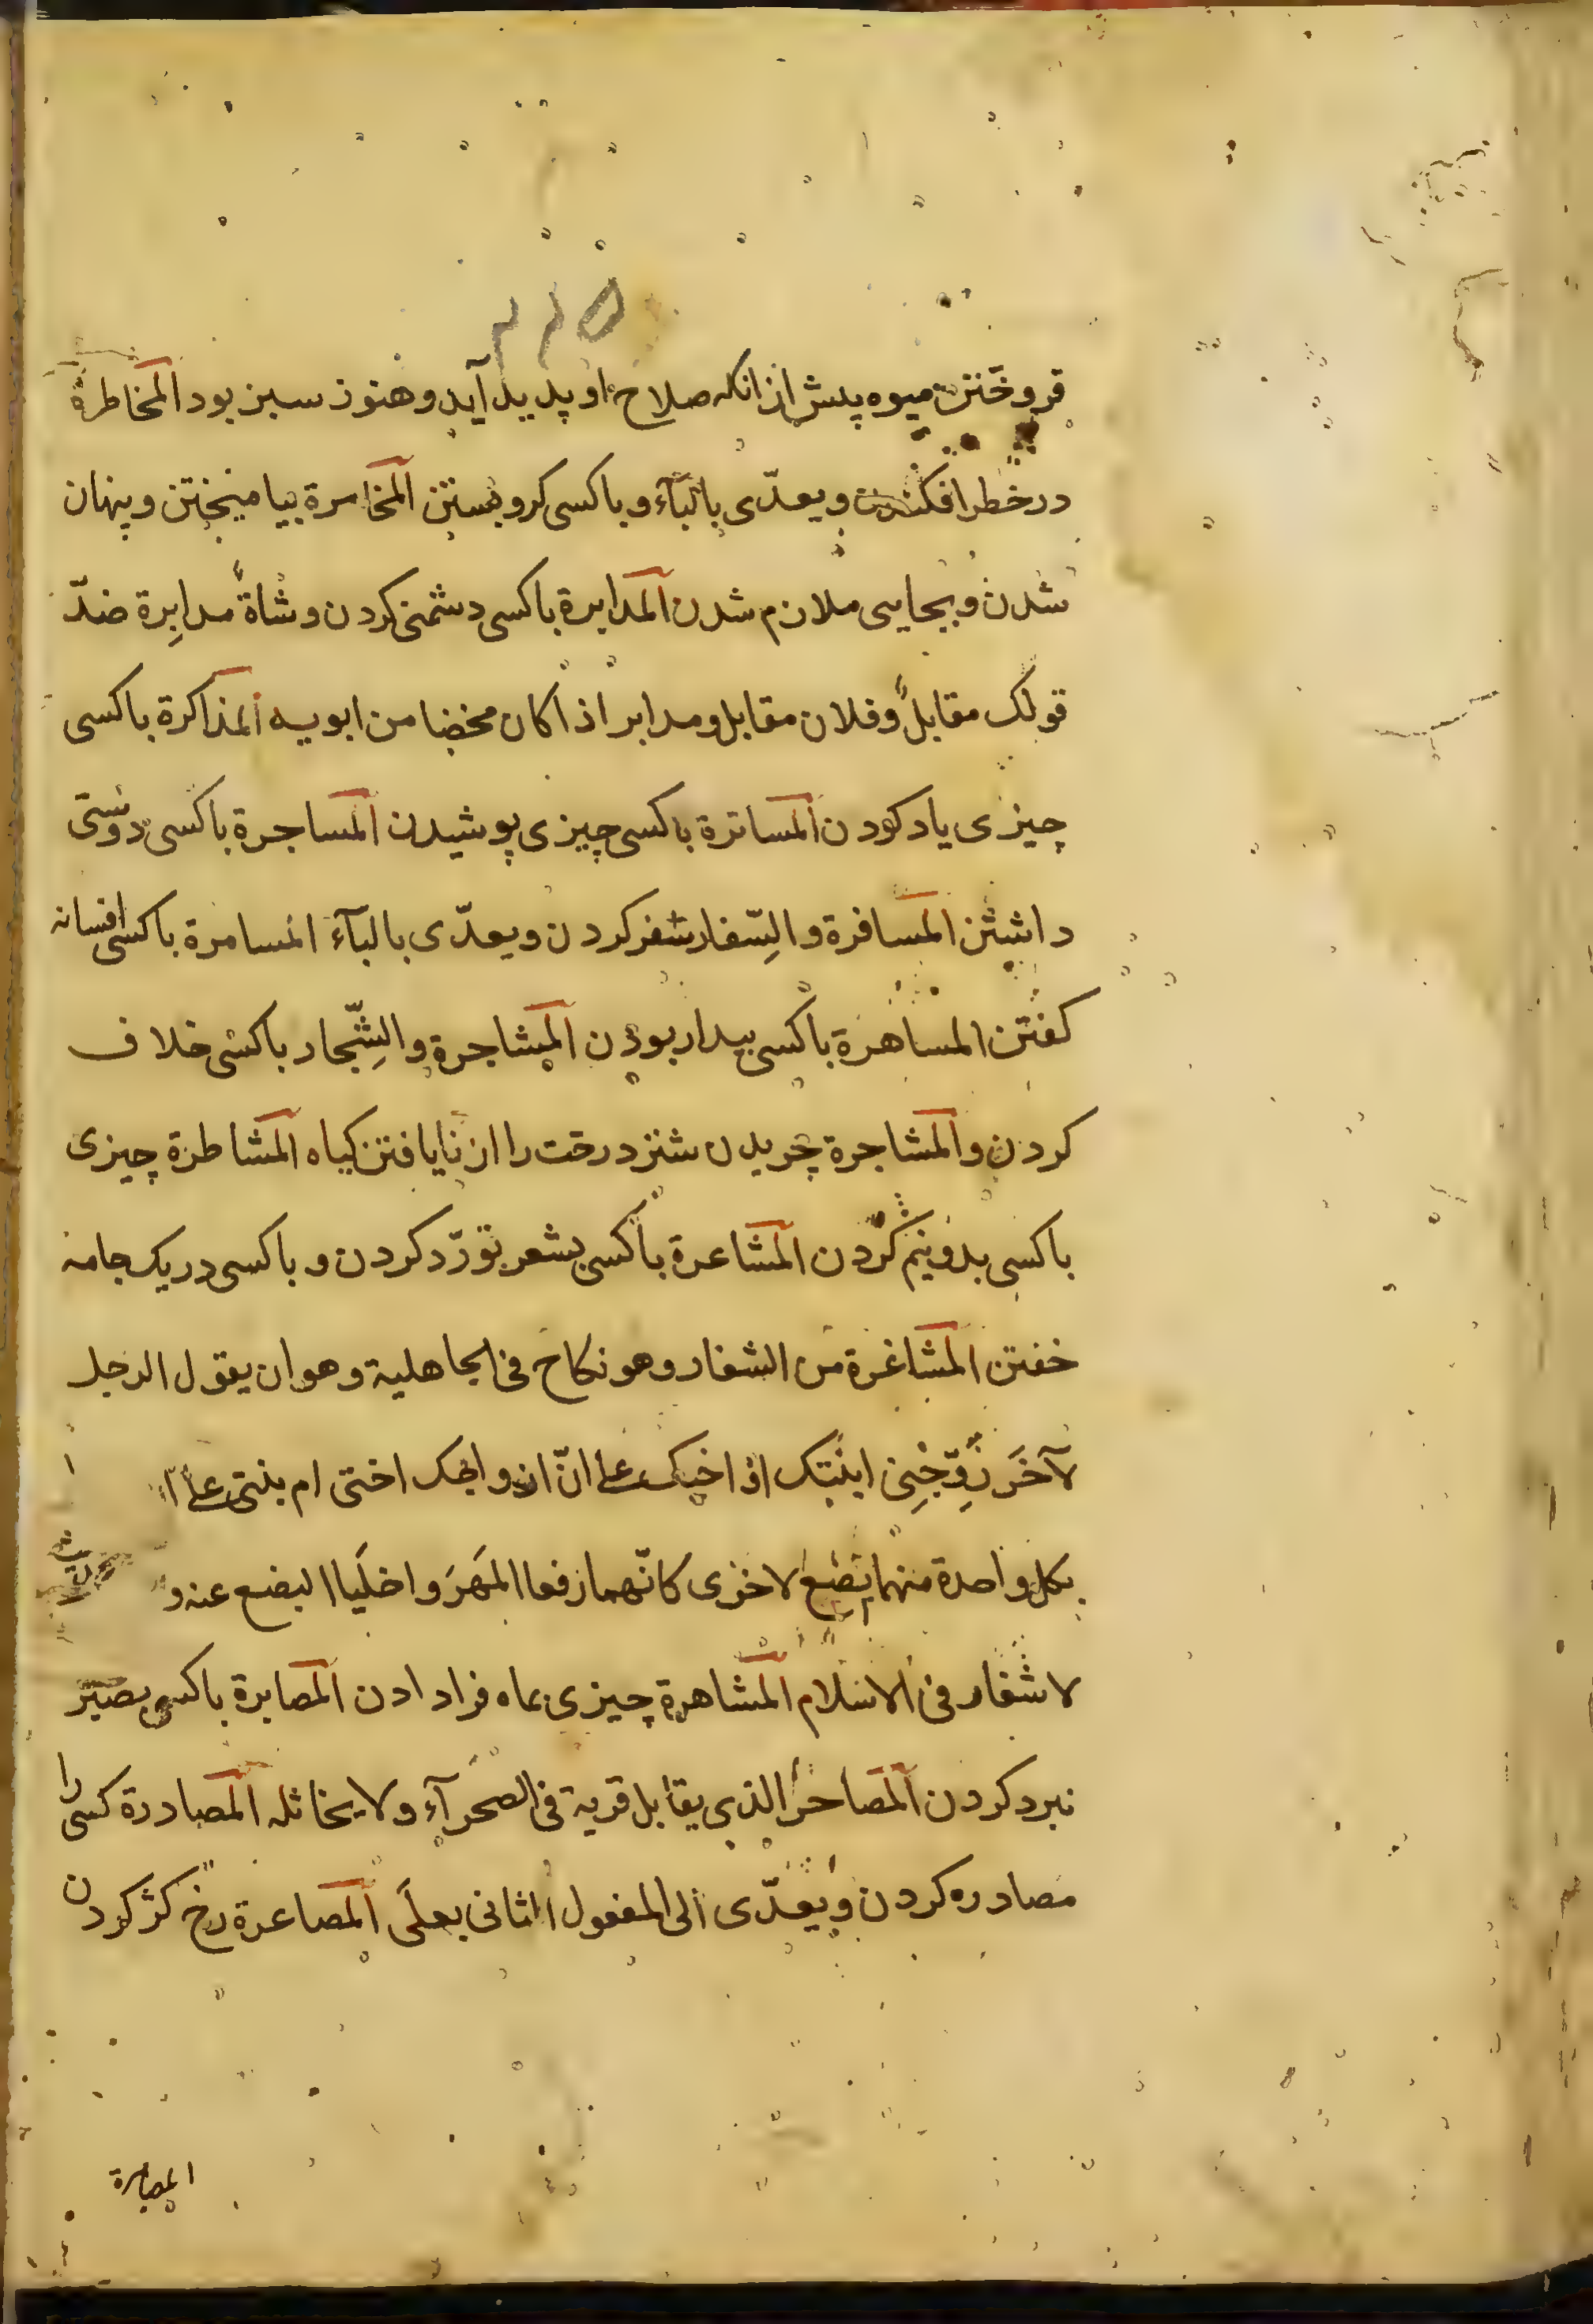 ۲۲۵
فروختن میوه پیش از انکه صلاح او پدید آید و هنوز سبز بود المخاطرة
در خطر افکندن و یعدّی بالبآء و با کسی کرو بستن المخامرة بیامیختن و پنهان
شدن و بجایی ملازم شدن المدابرة با کسی دشمنی کردن و شاةٌ مدابِرة ضدّ
قولک مقابلٌ و فلان مقابل و مدابر اذا کان مخضا من ابویه المذاکرة با کسی
چیزی یاد کردن المساترة با کسی چیزی پوشیدن المساجرة با کسی دوستی
داشتن المسافرة والسِّفار سفر کردن و یعدّی بالبآء المسامرة با کسی افسانه
کفتن المساهرة با کسی بیدار بودن المشاجرة والشِّجار با کسی خلاف
کردن والمشاجرة چریدن شتر درخت را از نایافتن کیاه المشاطرة چیزی
با کسی بدو نیم کردن المشاعرة با کسی بشعر نورّد کردن و با کسی در یک جامه
خفتن المشاغرة من الشغار و هو نکاح فی الجاهلیة و هو ان یقول الرجل
لآخَر زوِّجْنِی ابنتک او اختک علی انّ ازوجک اختی ام بنتی علی ا
بکل واحدة منهما بضع لاخری کانّهما رفعا المَهَرَ و اخلَیا البضع عنه و
لا شغار فی الاسلام المشاهرة چیزی بماه فرا دادن المصابرة با کسی بصبر
نبرد کردن المصاحر الذی یقابل قریه فی الصحرآء و لا یخاتله المصادرة کسی را
مصادره کردن و یعدّی الی المفعول الثانی بعلَی المصاعرة رخ کژ کردن
المصاهرة